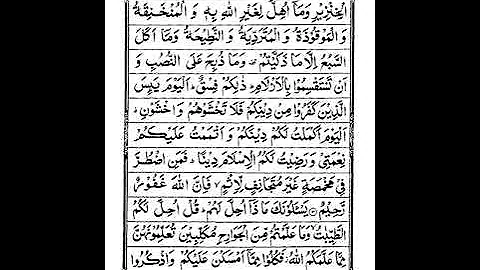 الْخِنْزِيْرِ وَمَاۤ اُهِلَّ لِغَيْرِ اللّٰهِ بِهٖ وَ الْمُنْخَنِقَةُ
وَ الْمَوْقُوْذَةُ وَ الْمُتَرَدِّيَةُ وَ النَّطِيْحَةُ وَ مَاۤ اَكَلَ
السَّبُعُ اِلَّا مَا ذَكَّيْتُمْ وَمَا ذُبِحَ عَلَى النُّصُبِ وَ
اَنْ تَسْتَقْسِمُوْا بِالْاَزْلَامِ ذٰلِكُمْ فِسْقٌ اَلْيَوْمَ يَىِٕسَ
الَّذِيْنَ كَفَرُوْا مِنْ دِيْنِكُمْ فَلَا تَخْشَوْهُمْ وَ اخْشَوْنِ
اَلْيَوْمَ اَكْمَلْتُ لَكُمْ دِيْنَكُمْ وَ اَتْمَمْتُ عَلَيْكُمْ
نِعْمَتِيْ وَ رَضِيْتُ لَكُمُ الْاِسْلَامَ دِيْنًا فَمَنِ اضْطُرَّ
فِيْ مَخْمَصَةٍ غَيْرَ مُتَجَانِفٍ لِّاِثْمٍ فَاِنَّ اللّٰهَ غَفُوْرٌ
رَّحِيْمٌ يَسْـَٔلُوْنَكَ مَا ذَاۤ اُحِلَّ لَهُمْ قُلْ اُحِلَّ لَكُمُ
الطَّيِّبٰتُ وَمَا عَلَّمْتُمْ مِّنَ الْجَوَارِحِ مُكَلِّبِيْنَ تُعَلِّمُوْنَهُنَّ
مِمَّا عَلَّمَكُمُ اللّٰهُ فَكُلُوْا مِمَّاۤ اَمْسَكْنَ عَلَيْكُمْ وَ اذْكُرُوا